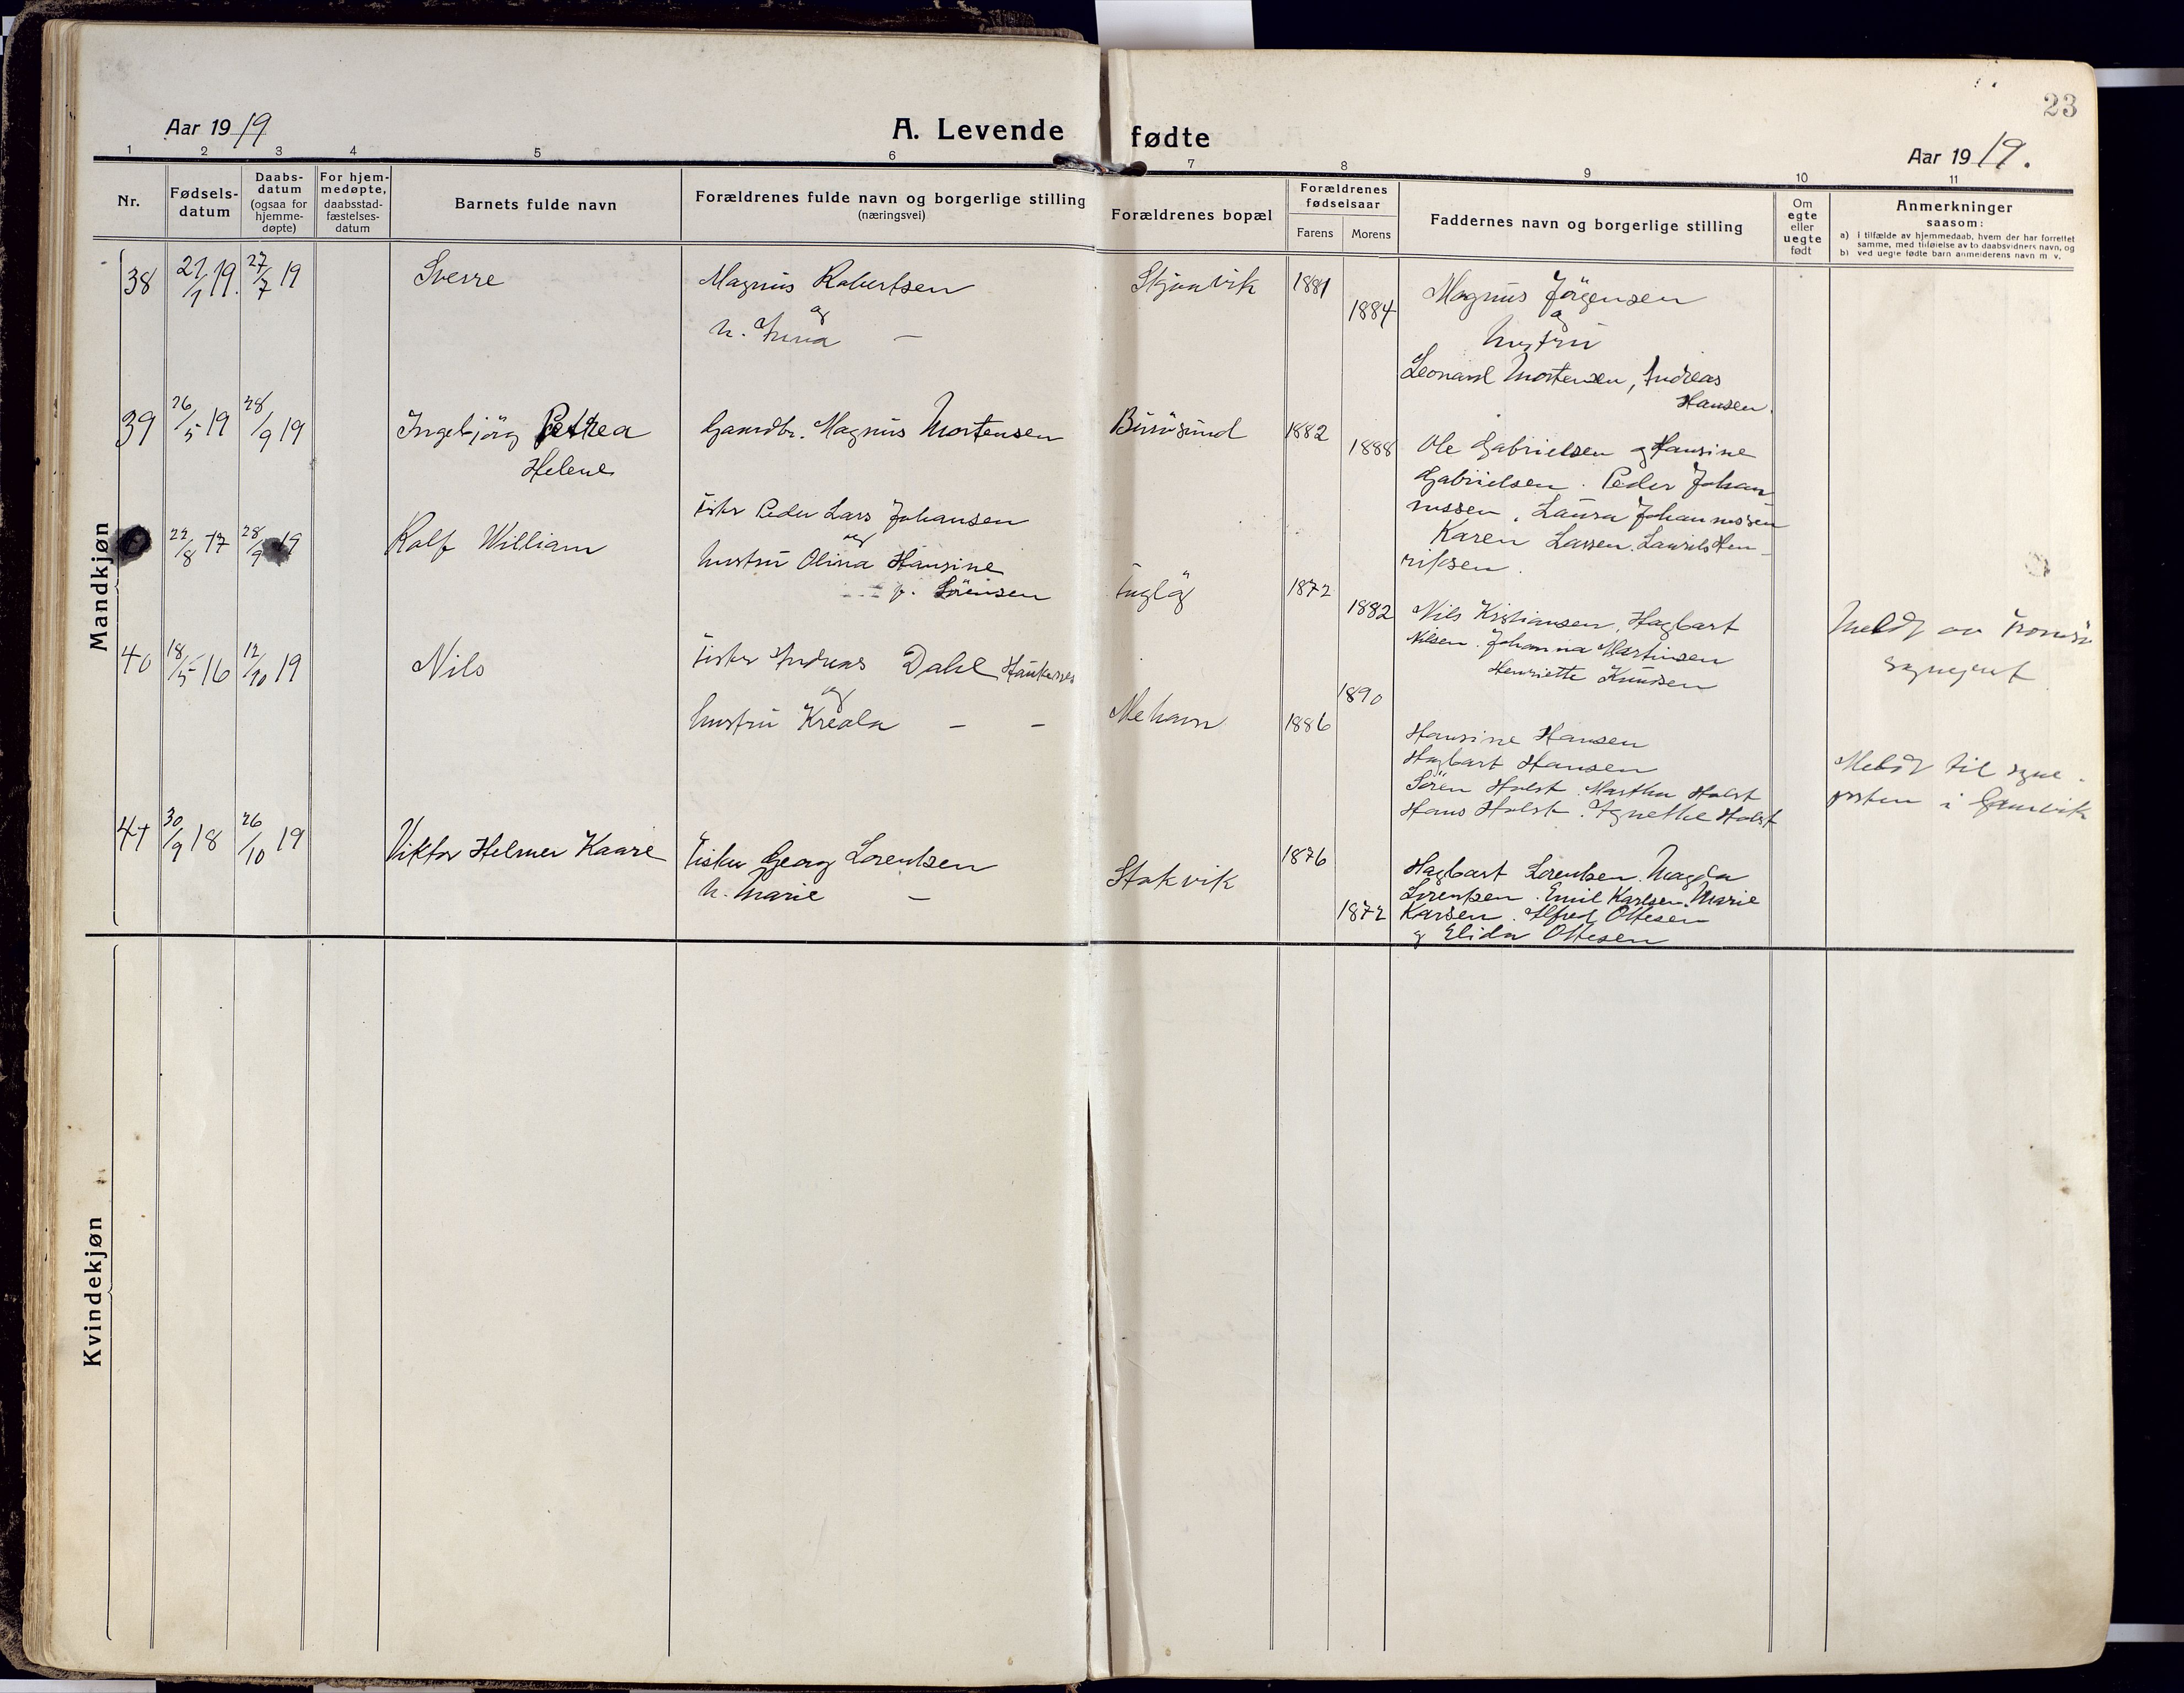 23
Aar 1919
A. Levende fødte
Aar 1919.
1 2 3 4 5 6 7 8 9 10 11
Nr.
Fødsels-
datum
Daabs-
datum
(ogsaa for
hjemme-
døpte)
For hjem-
medøpte,
daabsstad-
fæstelses-
datum
Barnets fulde navn
Forældrenes fulde navn og borgerlige stilling
(næringsvei)
Forældrenes bopæl
Forældrenes
fødselsaar
Farens Morens
Faddernes navn og borgerlige stilling
Om
egte
eller
uegte
født
Anmerkninger
saasom:
a) i tilfælde av hjemmedaab, hvem der har forrettet
samme, med tilføielse av to daabsvidners navn, og
b) ved uegte fødte barn anmelderens navn m. v.
Mandkjøn
38 27/7 19 Sverre Magnus Robertsen 1881
og
h. —
1884
Magnus Jörgensen
og
hustru
Leonard Mortensen, Andreas
Hansen.
39 26/5 19 28/9 19 Ingebjörg Petrea
Helene
Gaardbr. Magnus Mortensen
1882
1888
Ole Gabrielsen og Hansine
Gabrielsen. Peder Johan
nessen, Laura Johannessen
Karen Larsen. Laurits Hen-
riksen.
22/8 17 28/9 19 Rolf William
Fisker Peder Lars Johansen
og
hustru Olina Hansine
f. Sörensen
Fuglöy
1872
1882
Nils Kristiansen, Hagbart
Nilsen. Johanna Martinsen
Henriette Knudsen
Meldt av Tromsö
sogneprest
40 18/5 16 12/10 19 Nils
Fisker Andreas Dahl
og
hustru — —
Mehavn
1890
1886
Hansine Hansen
Hagbart Hansen
Sören Holst. Martha Holst
Hans Holst. Agnethe Holst
Meldt til sogne-
presten i Gamvik
41 30/9 18 26/10 19 Viktor Helmer Kaare
Fisker Georg Lorentsen
h. Marie —
Stakvik
1876
1872
Hagbart Lorentsen. Magda
Lorentsen. Emil Karlsen. Marie
Karlsen. Alfred Ottesen
og Elida Ottesen
Kvindekjøn